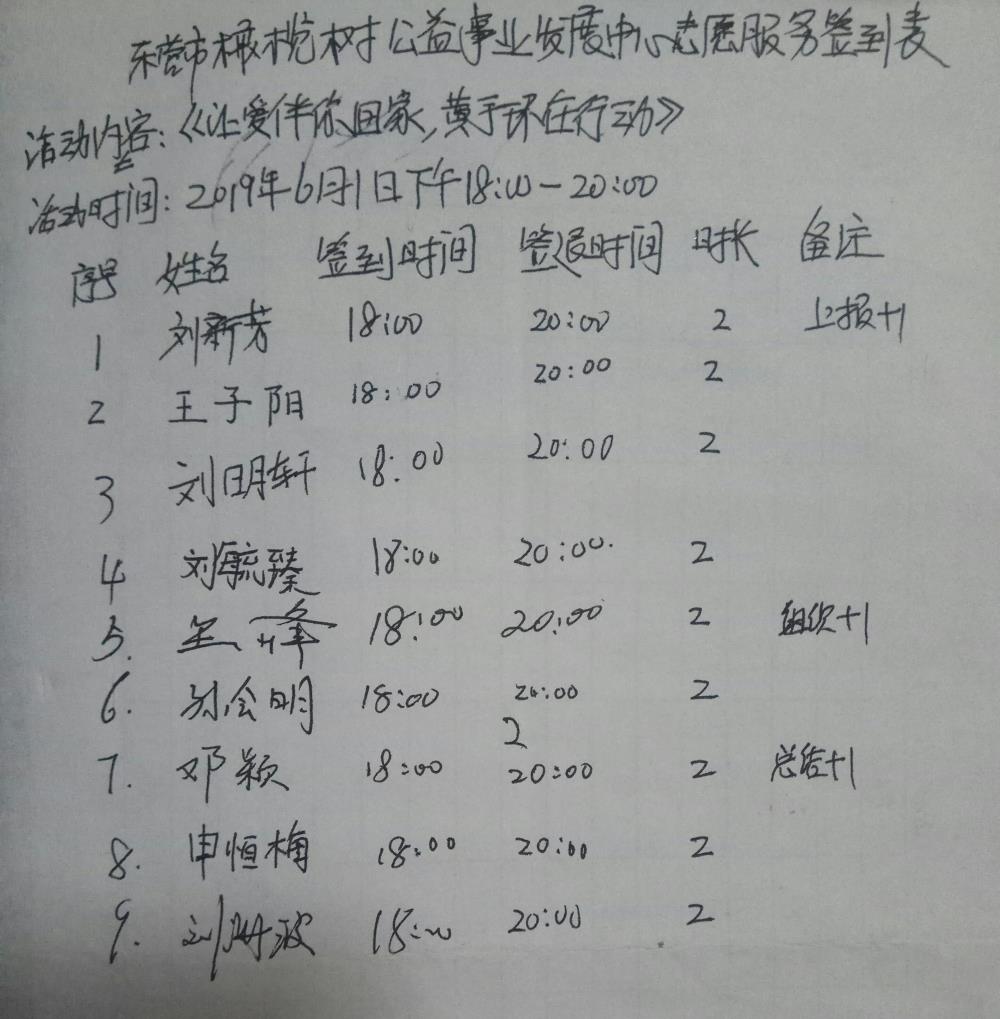 东营市橄榄树公益事业发展中心志愿服务签到表
活动内容:《让爱伴你回家,黄手环在行动》
活动时间:2019年6月1日下午18:00-20:00
序号 姓名 签到时间 签退时间 时长 备注
1 刘新芳 18:00 20:00 2 上报+1
2 王子阳 18:00 20:00 2
3 刘明轩 18:00 20:00 2
4 刘毓臻 18:00 20:00 2
5. 18:00 20:00 2 组织+1
6. 会明 18:00 20:00 2
2
7. 邓颖 18:00 20:00 2 总结+1
8. 申恒梅 18:00 20:00 2
9. 刘波 18:00 20:00 2